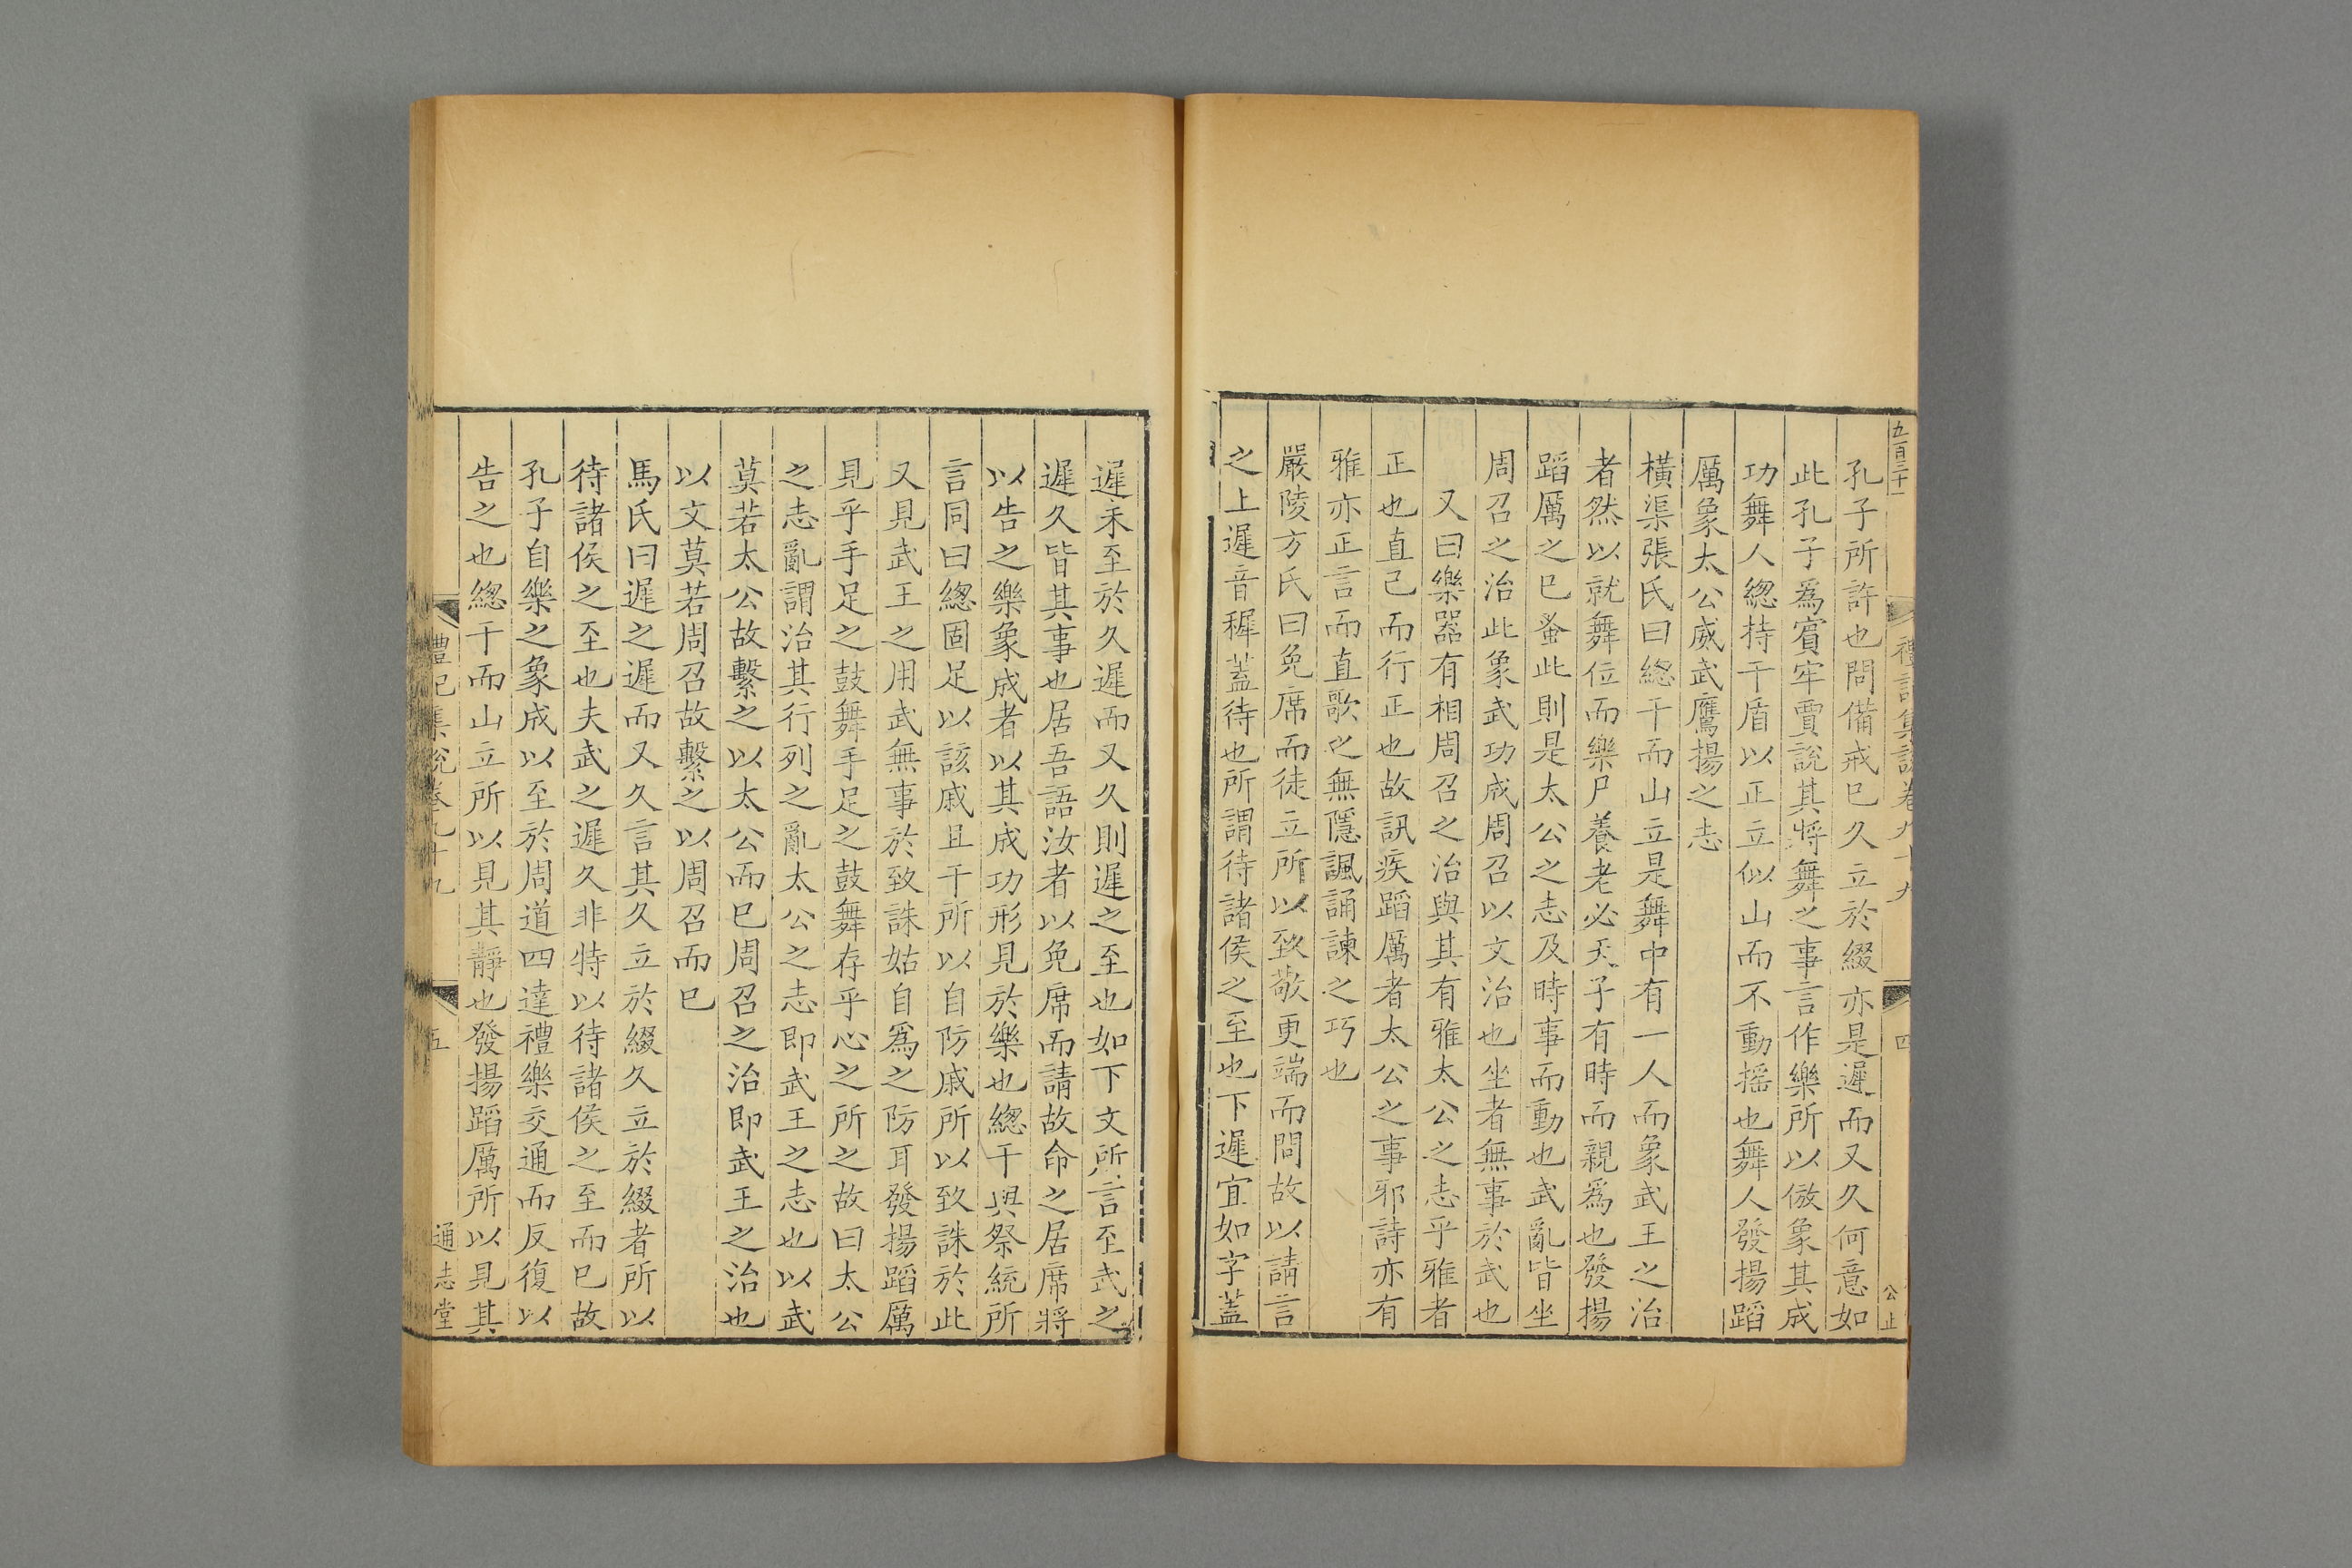 五百三十一
禮記集說卷九十九
四
公止
孔子所許也問備戒已久立於綴亦是遲而又久何意如
此孔子爲賓牟賈說其將舞之事言作樂所以倣象其成
功舞人總持干盾以正立似山而不動搖也舞人發揚蹈
厲象太公威武鷹揚之志
橫渠張氏曰總干而山立是舞中有一人而象武王之治
者然以就舞位而樂尸養老必天子有時而親爲也發揚
蹈厲之已蚤此則是太公之志及時事而動也武亂皆坐
周召之治此象武功成周召以文治也坐者無事於武也
又曰樂器有相周召之治與其有雅太公之志乎雅者
正也直己而行正也故訊疾蹈厲者太公之事邪詩亦有
雅亦正言而直歌之無隱諷誦諫之巧也
嚴陵方氏曰免席而徒立所以致敬更端而問故以請言
之上遲音穉蓋待也所謂待諸侯之至也下遲宜如字蓋
遲未至於久遲而又久則遲之至也如下文所言至武之
遲久皆其事也居吾語汝者以免席而請故命之居席將
以告之樂象成者以其成功形見於樂也總干與祭統所
言同曰總固足以該戚且干所以自防戚所以致誅於此
又見武王之用武無事於致誅姑自爲之防耳發揚蹈厲
見乎手足之鼓舞手足之鼓舞存乎心之所之故曰太公
之志亂謂治其行列之亂太公之志即武王之志也以武
莫若太公故繫之以太公而已周召之治即武王之治也
以文莫若周召故繫之以周召而已
馬氏曰遲之遲而又久言其久立於綴久立於綴者所以
待諸侯之至也夫武之遲久非特以待諸侯之至而已故
孔子自樂之象成以至於周道四達禮樂交通而反復以
告之也總干而山立所以見其靜也發揚蹈厲所以見其
禮記集說卷九十九
五
通志堂